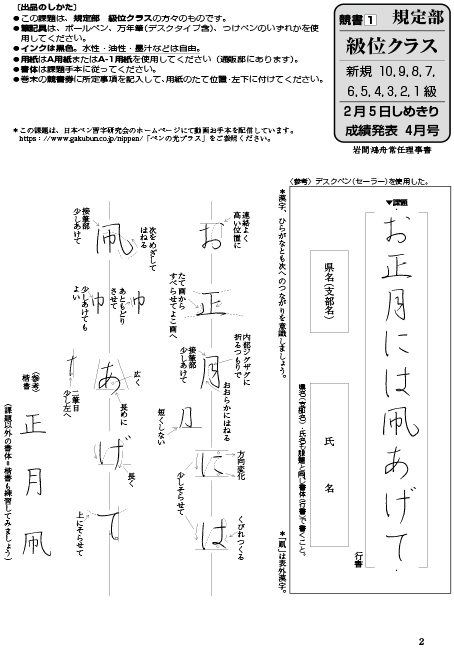 ［出品のしかた］
●この課題は、規定部　級位クラスの方々のものです。
●筆記具は、ボールペン、万年筆（デスクタイプ含）、つけペンのいずれかを使用してください。
●インクは黒色。水性・油性・墨汁などは自由。
●用紙はA用紙またはA-1用紙を使用してください（通販部にあります）。
●書体は課題手本に従ってください。
●巻末の競書券に所定事項を記入して、用紙のたて位置・左下に付けてください。
＊この課題は、日本ペン習字研究会のホームページにて動画お手本を配信しています。
https://www.gakubun.co.jp/nippen/「ペンの光プラス」をご参照ください。
競書1　規定部
級位クラス
新規 10、9、8、7、
6、5、4、3、2、1級
2月5日しめきり
成績発表 4月号
岩間鴻舟常任理事書
〈参考〉デスクペン（セーラー）を使用した。
▼課題
お正月には凧あげて
行書
県名（支部名）
氏名
県名（支部名）・氏名も課題と同じ書体（行書）で書くこと。
＊漢字、ひらがなとも次へのつながりを意識しましょう。
＊「凧」は表外漢字。
お
連絡よく
高い位置に
正
たて画から
すべらせてよこ画へ
月
内部ジグザグに
折るつもりで
おおらかにはねる
接筆部
少しあけて
月
短くしない
に
方向変化
少しそらせて
は
くびれつくる
凧
次をめざして
はねる
接筆部
少しあけて
巾
あともどり
させて
巾
少しあけても
よい
あ
広く
長めに
二筆目
少し左へ
げ
長く
て
上にそらせて
（参考）
楷書
正月凧
（課題以外の書体＝楷書も練習してみましょう）
2